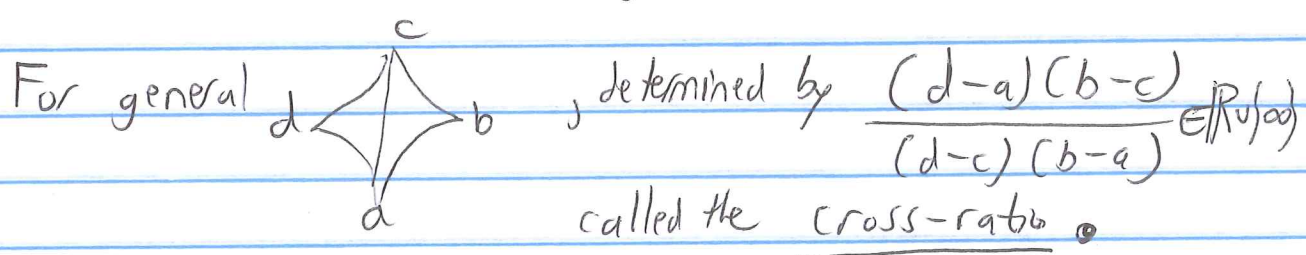 c
For general d b , determined by (d-a)(b-c) / (d-c)(b-a) ∈ ℝ∪{∞}
a
called the cross-ratio.